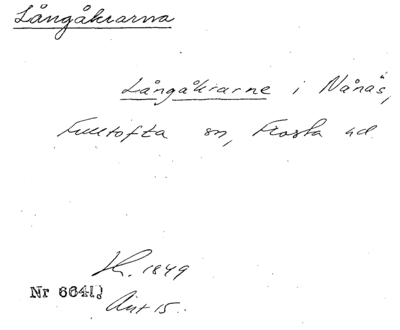 Långåkrarna
Långåkrarne i Nånäs,
Fulltofta sn, Frosta hd
Lh. 1849
Nr 6641.
Akt 15.